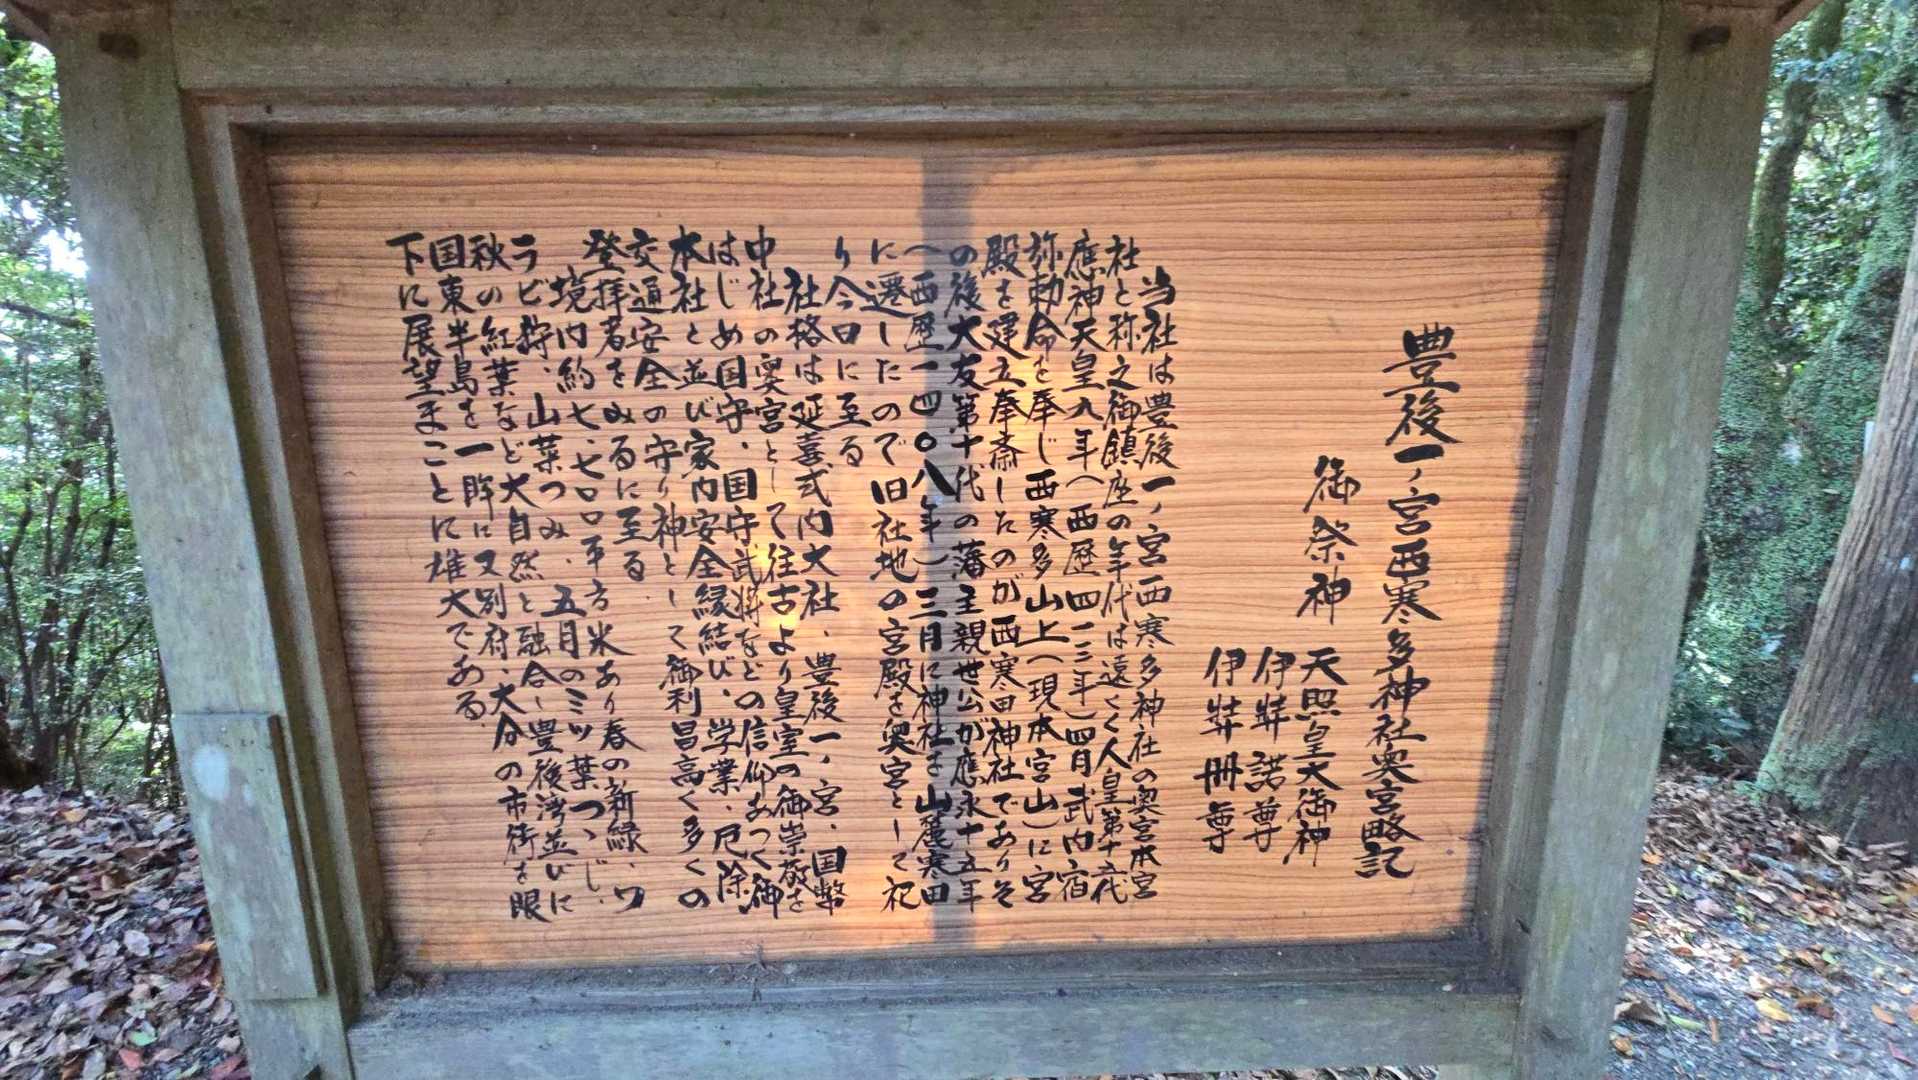 豊後一ノ宮西寒多神社奥宮略記
御祭神
天照皇大御神
伊弉諾尊
伊弉冊尊
当社は豊後一ノ宮西寒多神社の奥宮本宮
社と称之御鎮座の年代は遠くく人皇第十五代
應神天皇九年(西歴四一三年)四月武内宿
弥勅命を奉じ西寒多山上(現本宮山)に宮
殿を建立奉斎したのが西寒田神社でありそ
の後大友第十代の藩主親世公が應永十五年
(西歴一四〇八年)三月に神社を山麓寒田
に遷したので旧社地の宮殿を奥宮として祀
り今日に至る
社格は延喜式内大社、豊後一ノ宮、国幣
中社の奥宮として往古より皇室の御崇敬を
はじめ国守、国守武将などの信仰あつく御
本社と並び家内安全縁結び、学業、厄除、
交通安全の守り神として御利昌高く多くの
登拝者をみるに至る
境内約七、七〇〇平方米あり春の新緑、ワ
ラビ狩、山菜つみ、五月のミツ葉つゝじ、
秋の紅葉など大自然と融合し豊後湾並びに
国東半島を一眸に又別府、大分の市街を眼
下に展望まことに雄大である